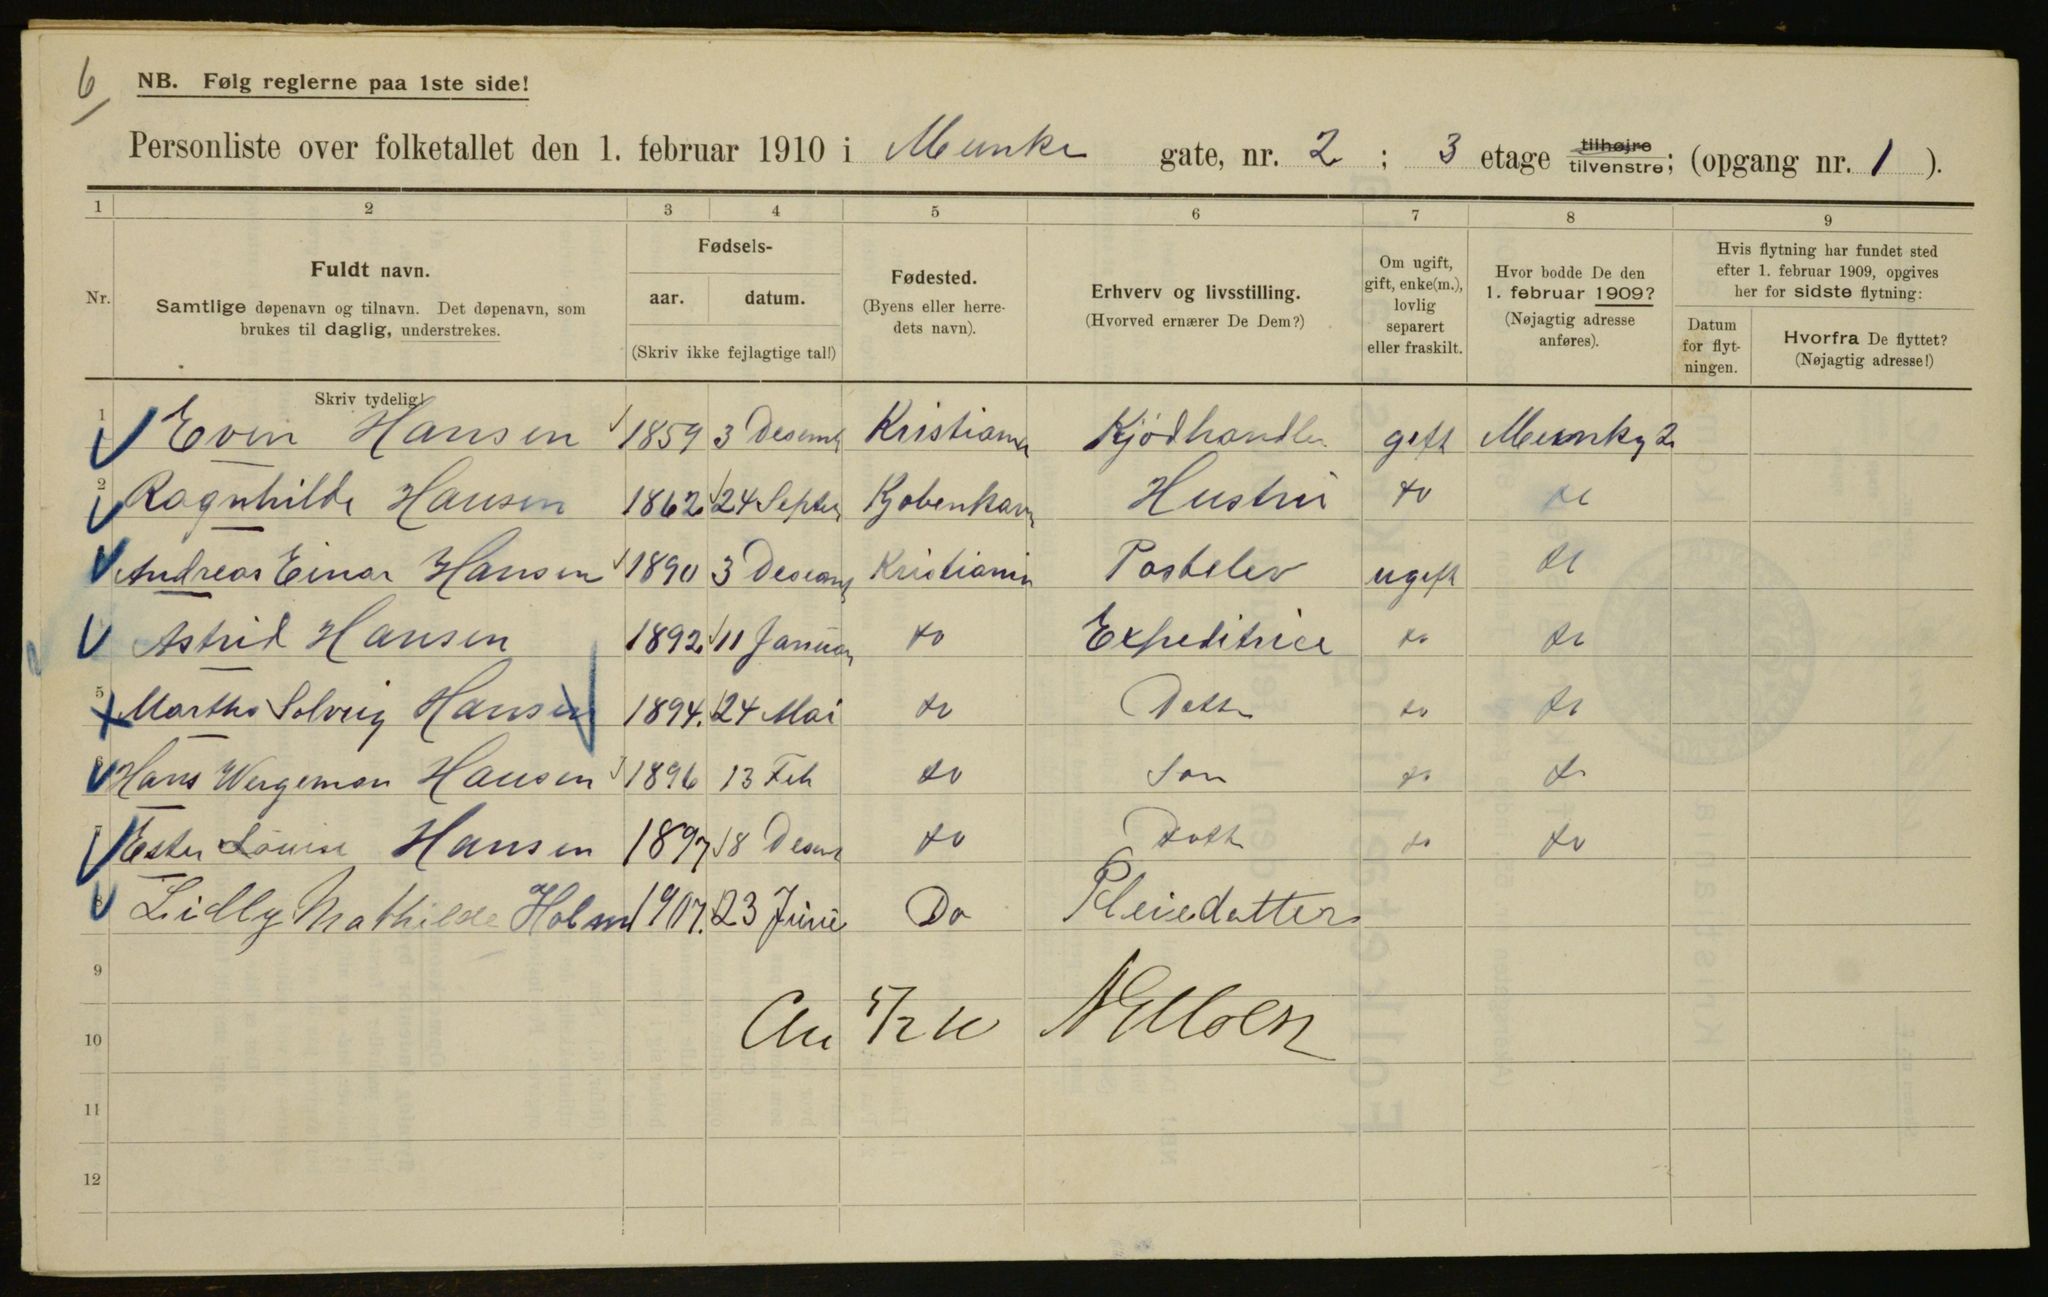 6
NB. Følg reglerne paa 1ste side!
Personliste over folketallet den 1. februar 1910 i Munke gate, nr. 2 ; 3 etage tilhøjre tilvenstre; (opgang nr. 1 ).
1 2 3 4 5 6 7 8 9
Nr.
Fuldt navn.
Samtlige døpenavn og tilnavn. Det døpenavn, som
brukes til daglig, understrekes.
Fødsels-
aar. datum.
(Skriv ikke fejlagtige tal!)
Fødested.
(Byens eller herre-
dets navn).
Erhverv og livsstilling.
(Hvorved ernærer De Dem?)
Om ugift,
gift, enke(m.),
lovlig
separert
eller fraskilt.
Hvor bodde De den
1. februar 1909?
(Nøjagtig adresse
anføres).
Hvis flytning har fundet sted
efter 1. februar 1909, opgives
her for sidste flytning:
Datum
for flyt-
ningen.
Hvorfra De flyttet?
(Nøjagtig adresse!)
Skriv tydelig!
1 Even Hansen 1859 3 Desemb Kristiania Kjödhandler gift Munkg 2
2 Ragnhilde Hansen 1862 24 Septem Kjobenkavn Hustru do do
Andreas Einar Hansen 1890 3 Desemb Kristiania Postelev ugift do
Astrid Hansen 1892 11 Januar do Expeditrice do do
5 Martha Solveig Hansen 1894. 24 Mai do Datter do do
6 Hans Wergeman Hansen 1896 13 Feb do Son do do
7 Ester Louise Hansen 1897 18 Desem do Dotter do do
8 Lidly Mathilde Holm 1907. 23 Juni Do Pleiedatter
9
10
5/2 10
11
12